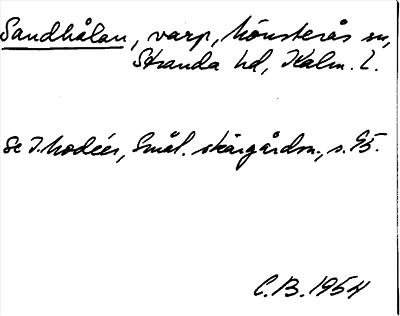 Sandhålan, varp, Mönsterås sn,
Stranda hd, Kalm. l.
Se I. Modéer, Smål. skärgårdsn., s. 95.
C.B. 1954